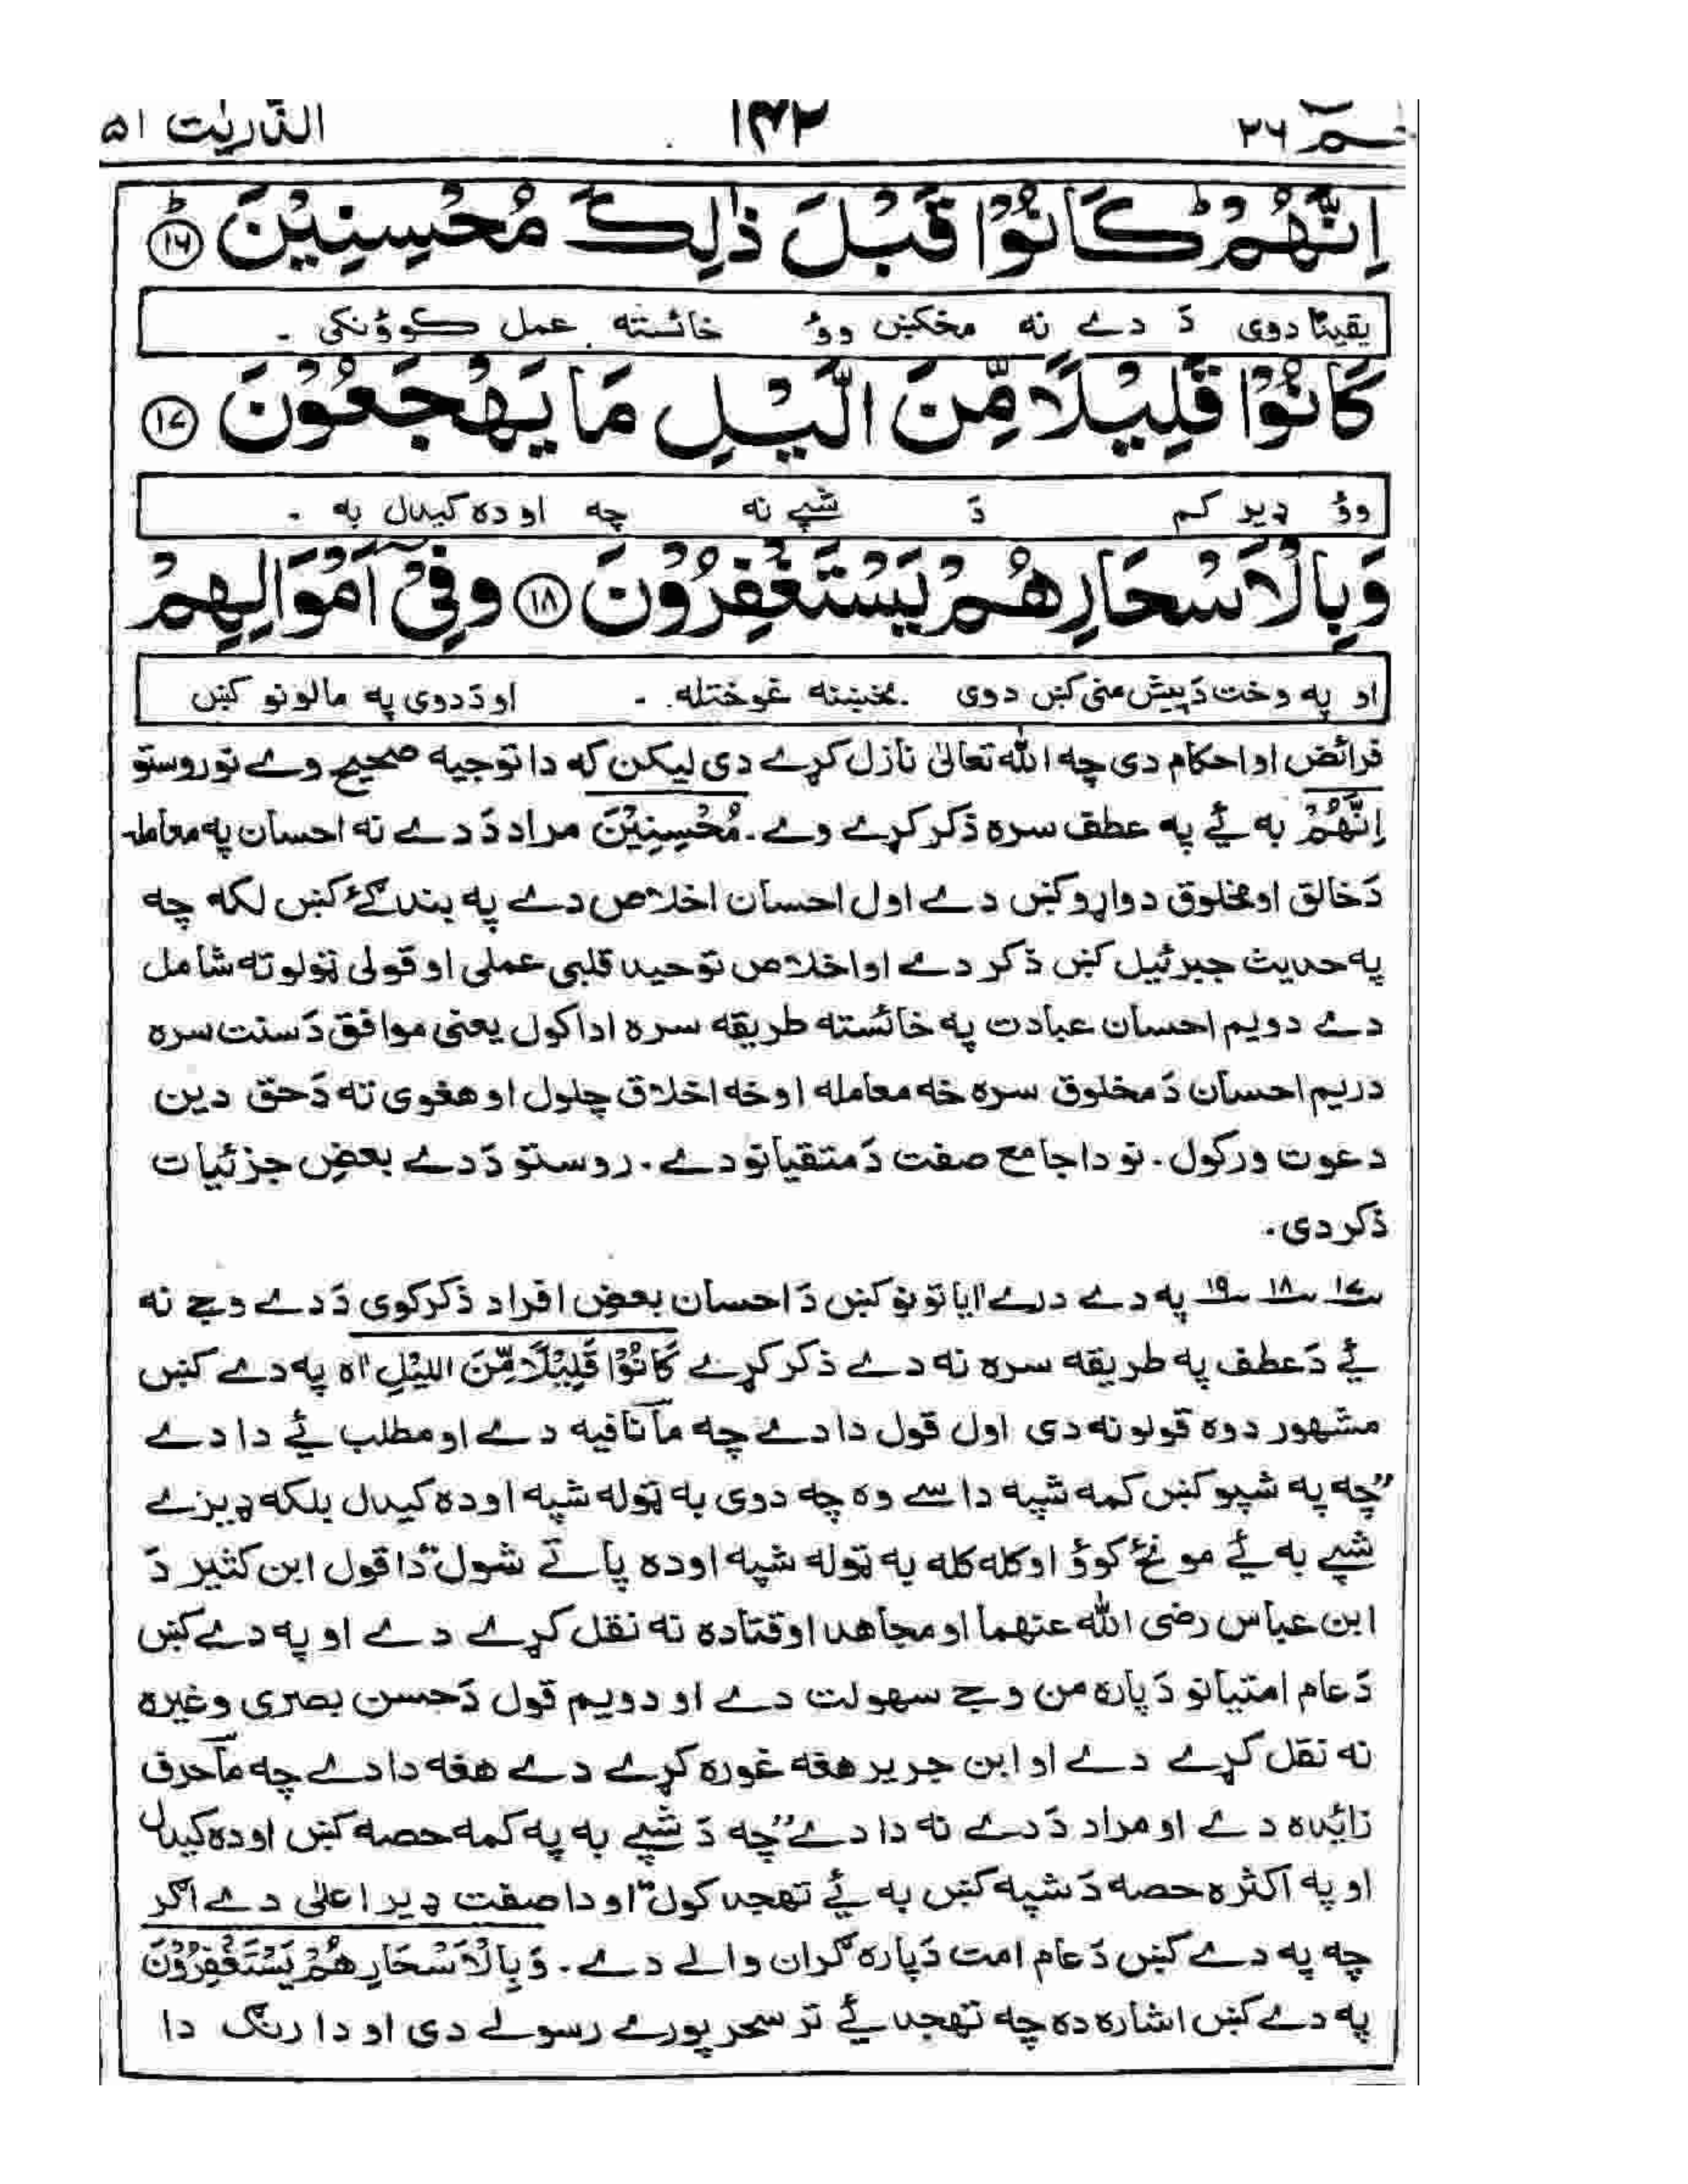 حٰمٓ ٢٦ ١٤٢ الذّٰریٰت ٥١
اِنَّهُمْ كَانُوْا قَبْلَ ذٰلِكَ مُحْسِنِيْنَ ؕ ﴿١٦﴾
يقينًا دوی دَ دے نه مخکښ وؤ خائسته عمل کوؤنکی .
كَانُوْا قَلِيْلًا مِّنَ الَّيْلِ مَا يَهْجَعُوْنَ ﴿١٧﴾
وؤ ډير کم دَ شپے نه چه اوده کيدل به .
وَبِالْاَسْحَارِ هُمْ يَسْتَغْفِرُوْنَ ﴿١٨﴾ وَفِیْٓ اَمْوَالِهِمْ
او په وخت دَ پيش منی کښ دوی بخښنه غوختله . او دَ دوی په مالونو کښ
فرائض او احکام دی چه الله تعالیٰ نازل کړے دی ليکن که دا توجيه صحيح وے نو روستو
اِنَّهُمْ به ئے په عطف سره ذکر کړے وے. مُحْسِنِيْنَ مراد دَ دے نه احسان په معامله
دَ خالق او مخلوق دواړو کښ دے اول احسان اخلاص دے په بندګئ کښ لکه چه
په حديث جبرئيل کښ ذکر دے او اخلاص توحيد قلبی عملی او قولی ټولو ته شامل
دے دويم احسان عبادت په خائسته طريقه سره ادا کول يعنی موافق دَ سنت سره
دريم احسان دَ مخلوق سره خه معامله او خه اخلاق چلول او هغوی ته دَ حق دين
دعوت ورکول. نو دا جامع صفت دَ متقيانو دے. روستو دَ دے بعض جزئيات
ذکر دی.
١٧ ١٨ ١٩ په دے درے اياتونو کښ دَ احسان بعض افراد ذکر کوی دَ دے وجے نه
ئے دَ عطف په طريقه سره نه دے ذکر کړے كَانُوْا قَلِيْلًا مِّنَ الليْلِ اه په دے کښ
مشهور دوه قولونه دی اول قول دا دے چه مآ نافيه دے او مطلب ئے دا دے
”چه په شپو کښ کمه شپه داسے وه چه دوی به ټوله شپه اوده کيدل بلکه ډيرے
شپے به ئے مونځ کوؤ او کله کله به ټوله شپه اوده پاتے شول“ دا قول ابن کثير دَ
ابن عباس رضی الله عنهما او مجاهد او قتاده نه نقل کړے دے او په دے کښ
دَ عام امتيانو دَ پاره من وجے سهولت دے او دويم قول دَ حسن بصری وغيره
نه نقل کړے دے او ابن جرير هغه غوره کړے دے هغه دا دے چه مآ حرف
زائده دے او مراد دَ دے نه دا دے ”چه دَ شپے به په کمه حصه کښ اوده کيدل
او په اکثره حصه دَ شپه کښ به ئے تهجد کول“ او دا صفت ډير اعلٰی دے اګر
چه په دے کښ دَ عام امت دَ پاره ګران والے دے. وَبِالْاَسْحَارِ هُمْ يَسْتَغْفِرُوْنَ
په دے کښ اشاره ده چه تهجد ئے تر سحر پورے رسولے دی او دا رنګ دا